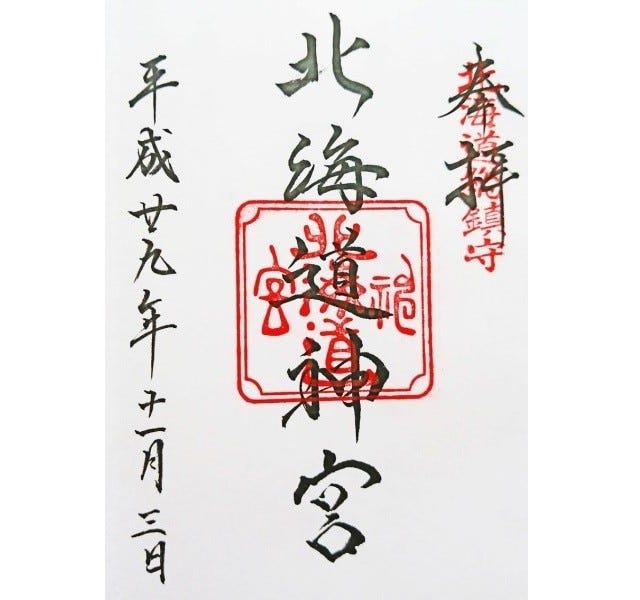 奉拝
北海道総鎮守
北海道神宮
北海道神宮
平成廿九年十一月三日